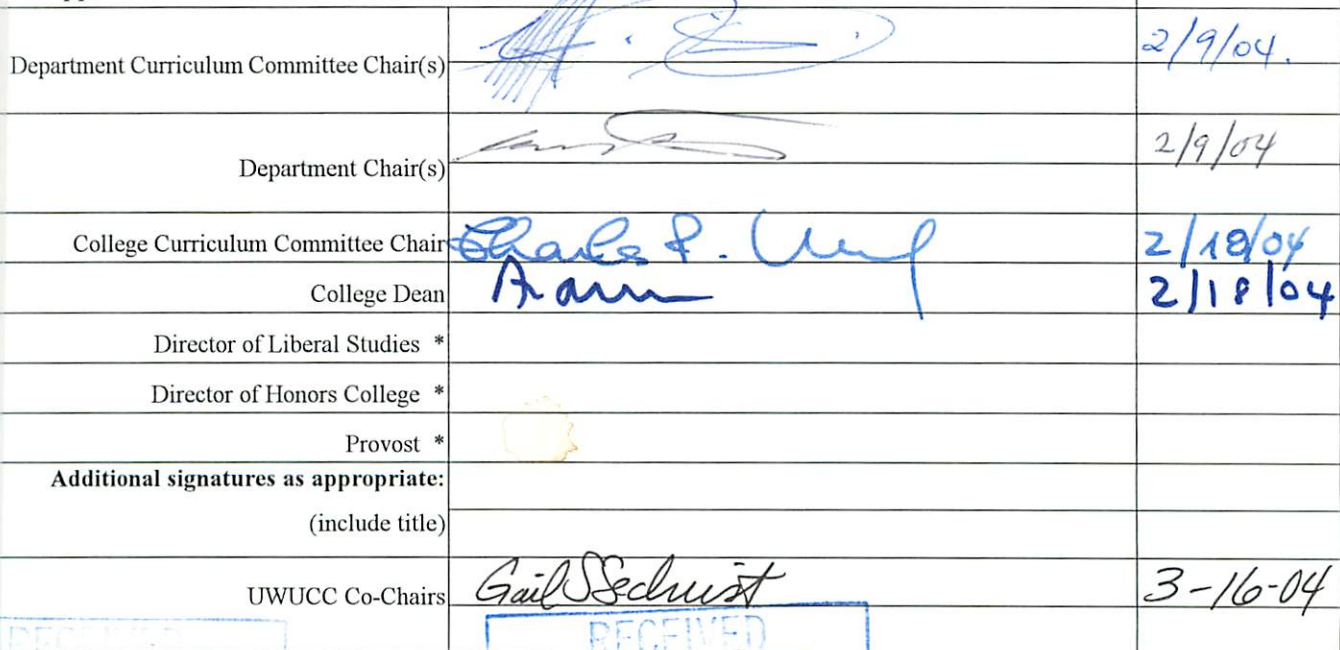 Department Curriculum Committee Chair(s) 2/9/04.
Department Chair(s) 2/9/04
College Curriculum Committee Chair Charles P. 2/18/04
College Dean 2/18/04
Director of Liberal Studies *
Director of Honors College *
Provost *
Additional signatures as appropriate:
(include title)
UWUCC Co-Chairs Gail S Sechrist 3-16-04
RECEIVED RECEIVED